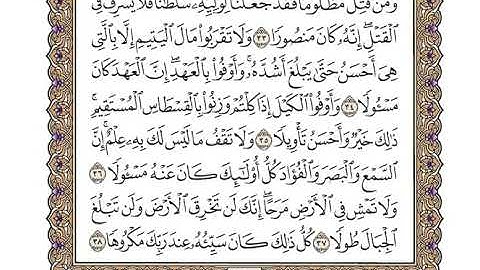 وَمَن قُتِلَ مَظْلُومًا فَقَدْ جَعَلْنَا لِوَلِيِّهِۦ سُلْطَٰنًا فَلَا يُسْرِف فِّي
ٱلْقَتْلِ ۖ إِنَّهُۥ كَانَ مَنصُورًا ٣٣ وَلَا تَقْرَبُوا۟ مَالَ ٱلْيَتِيمِ إِلَّا بِٱلَّتِي
هِيَ أَحْسَنُ حَتَّىٰ يَبْلُغَ أَشُدَّهُۥ ۚ وَأَوْفُوا۟ بِٱلْعَهْدِ ۖ إِنَّ ٱلْعَهْدَ كَانَ
مَسْـُٔولًا ٣٤ وَأَوْفُوا۟ ٱلْكَيْلَ إِذَا كِلْتُمْ وَزِنُوا۟ بِٱلْقِسْطَاسِ ٱلْمُسْتَقِيمِ ۚ
ذَٰلِكَ خَيْرٌ وَأَحْسَنُ تَأْوِيلًا ٣٥ وَلَا تَقْفُ مَا لَيْسَ لَكَ بِهِۦ عِلْمٌ ۚ إِنَّ
ٱلسَّمْعَ وَٱلْبَصَرَ وَٱلْفُؤَادَ كُلُّ أُو۟لَٰٓئِكَ كَانَ عَنْهُ مَسْـُٔولًا ٣٦
وَلَا تَمْشِ فِي ٱلْأَرْضِ مَرَحًا ۖ إِنَّكَ لَن تَخْرِقَ ٱلْأَرْضَ وَلَن تَبْلُغَ
ٱلْجِبَالَ طُولًا ٣٧ كُلُّ ذَٰلِكَ كَانَ سَيِّئُهُۥ عِندَ رَبِّكَ مَكْرُوهًا ٣٨